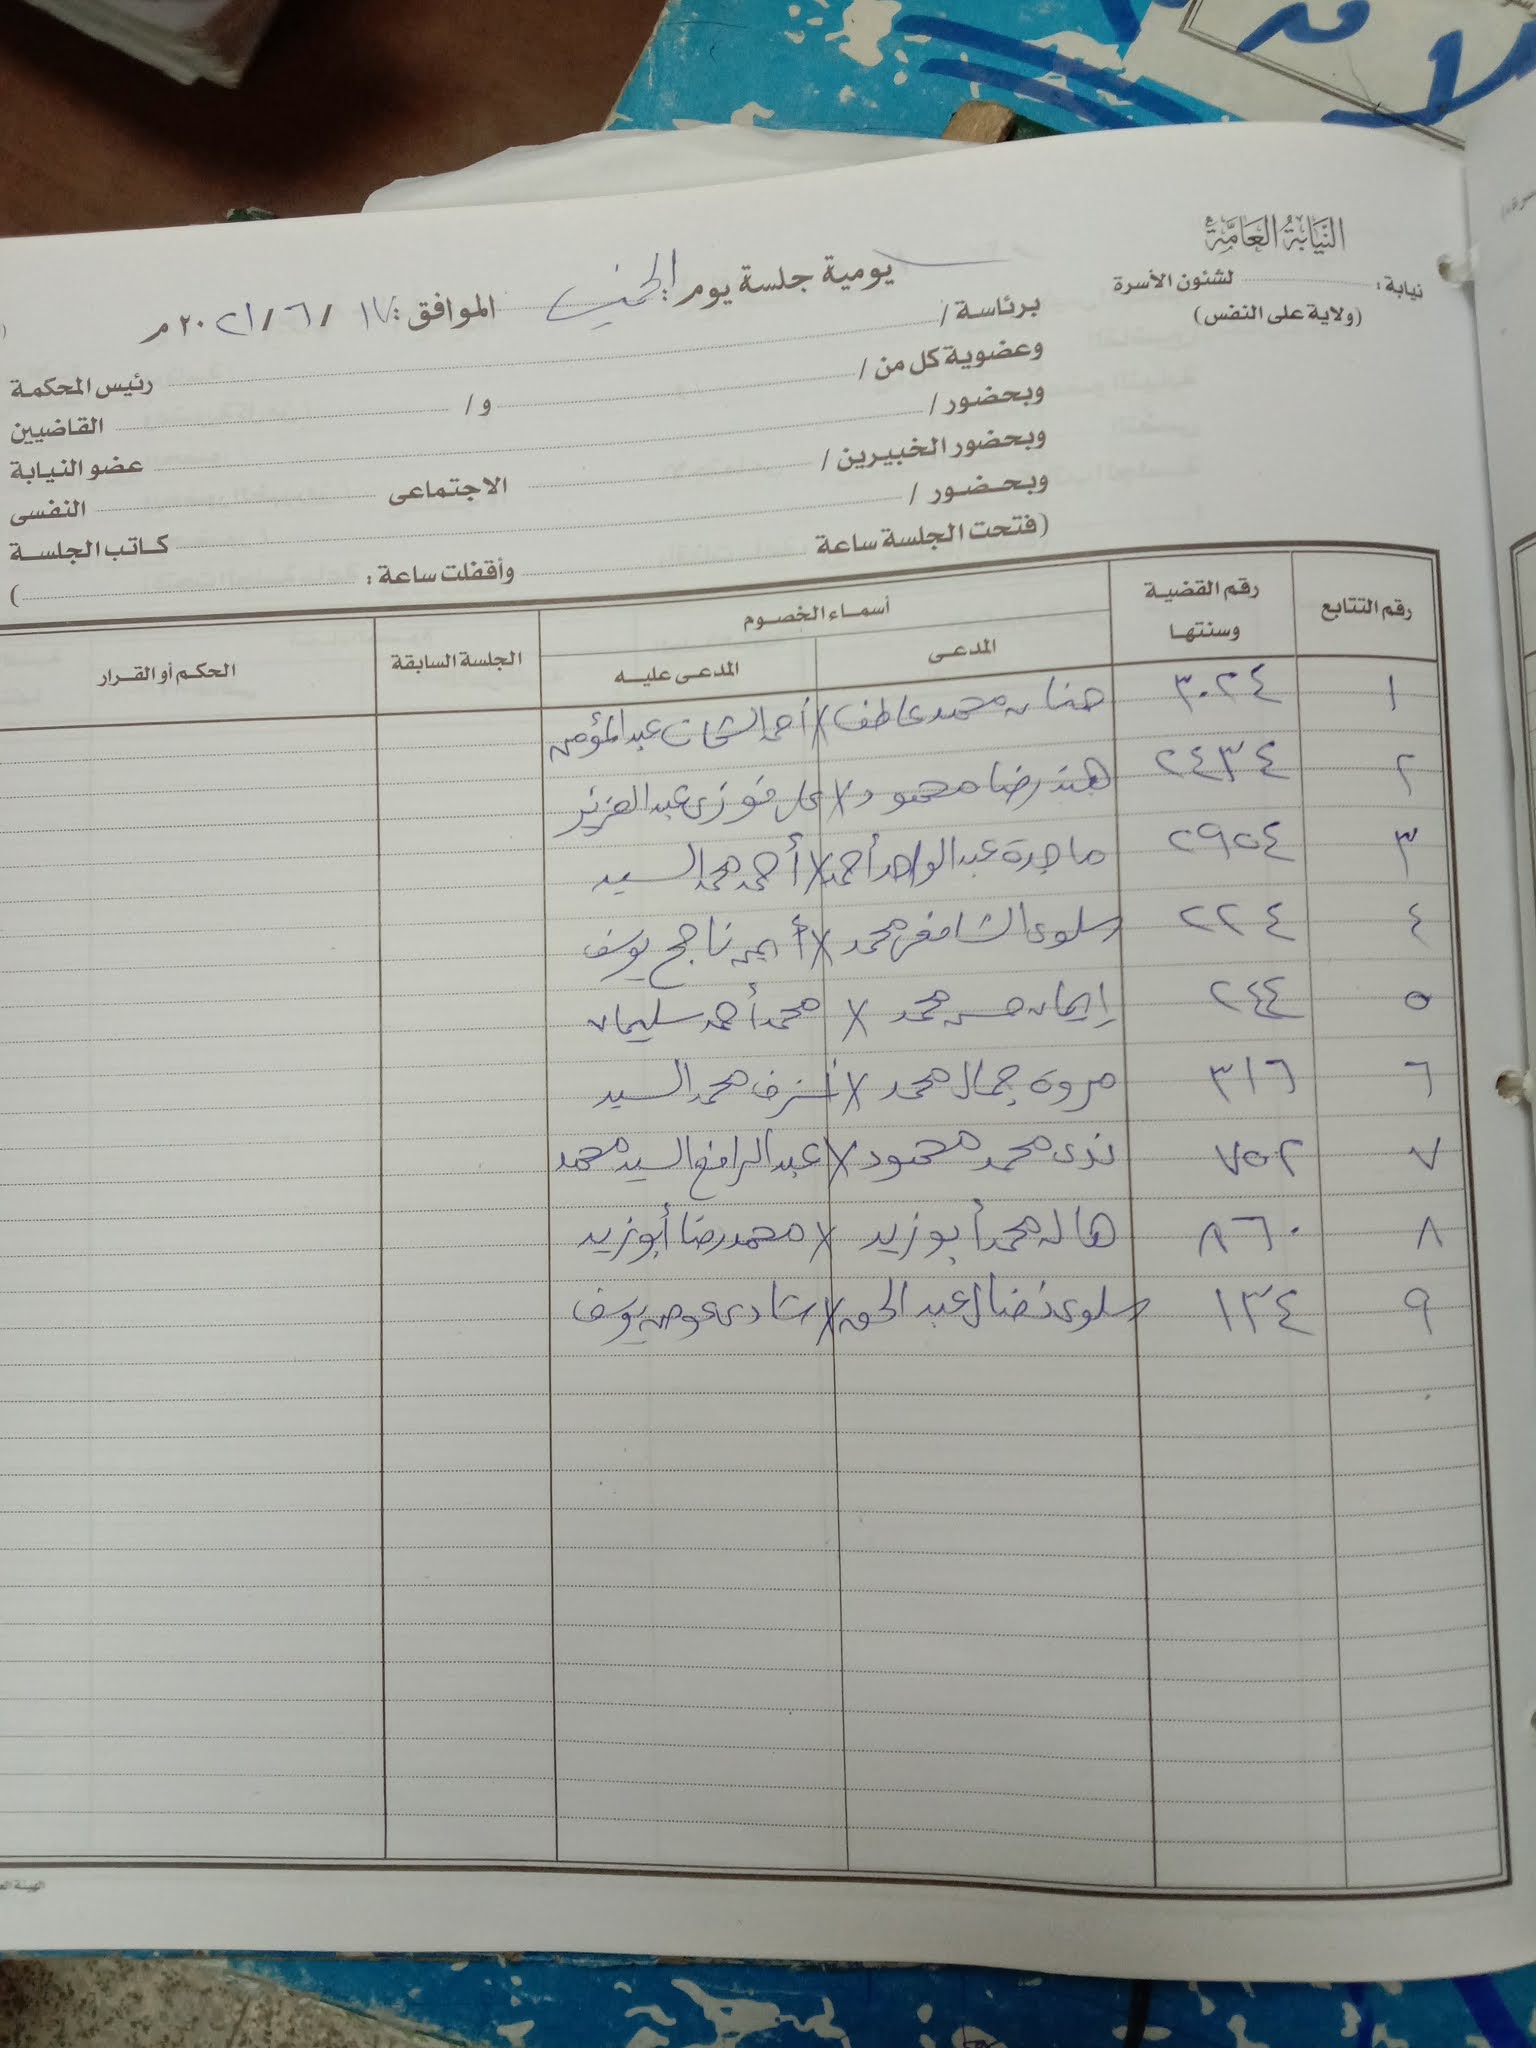 النيابة العامة
نيابة : لشئون الأسرة
(ولاية على النفس)
يومية جلسة يوم الخميس الموافق : ١٧ / ٦ / ٢٠٢١ م
برئاسة / رئيس المحكمة
وعضوية كل من / و / القاضيين
وبحضور / عضو النيابة
وبحضور الخبيرين / الاجتماعى النفسى
وبحضور / كاتب الجلسة
(فتحت الجلسة ساعة وأقفلت ساعة : )
رقم التتابع رقم القضية وسنتها أسماء الخصوم الجلسة السابقة الحكم أو القرار
المدعى المدعى عليه
١ ٣٠٢٤ حنان محمد عاطف X أحمد الشحات عبد المؤمن
٢ ٢٤٣٤ هند رضا محمود X على فوزى عبد العزيز
٣ ٢٩٥٤ ماجدة عبد الواحد أحمد X أحمد محمد السيد
٤ ٢٢٤ سلوى الشافعى محمد X أيمن ناجح يوسف
٥ ٢٤٤ إيمان حسن محمد X محمد أحمد سليمان
٦ ٣١٦ مروة جمال محمد X أشرف محمد السيد
٧ ٧٥٢ ندى محمد محمود X عبد الرافع السيد محمد
٨ ٨٦٠ هاله محمد أبو زيد X محمد رضا أبو زيد
٩ ١٣٤ سلوى نضال عبد الحق X شادى عوض يوسف